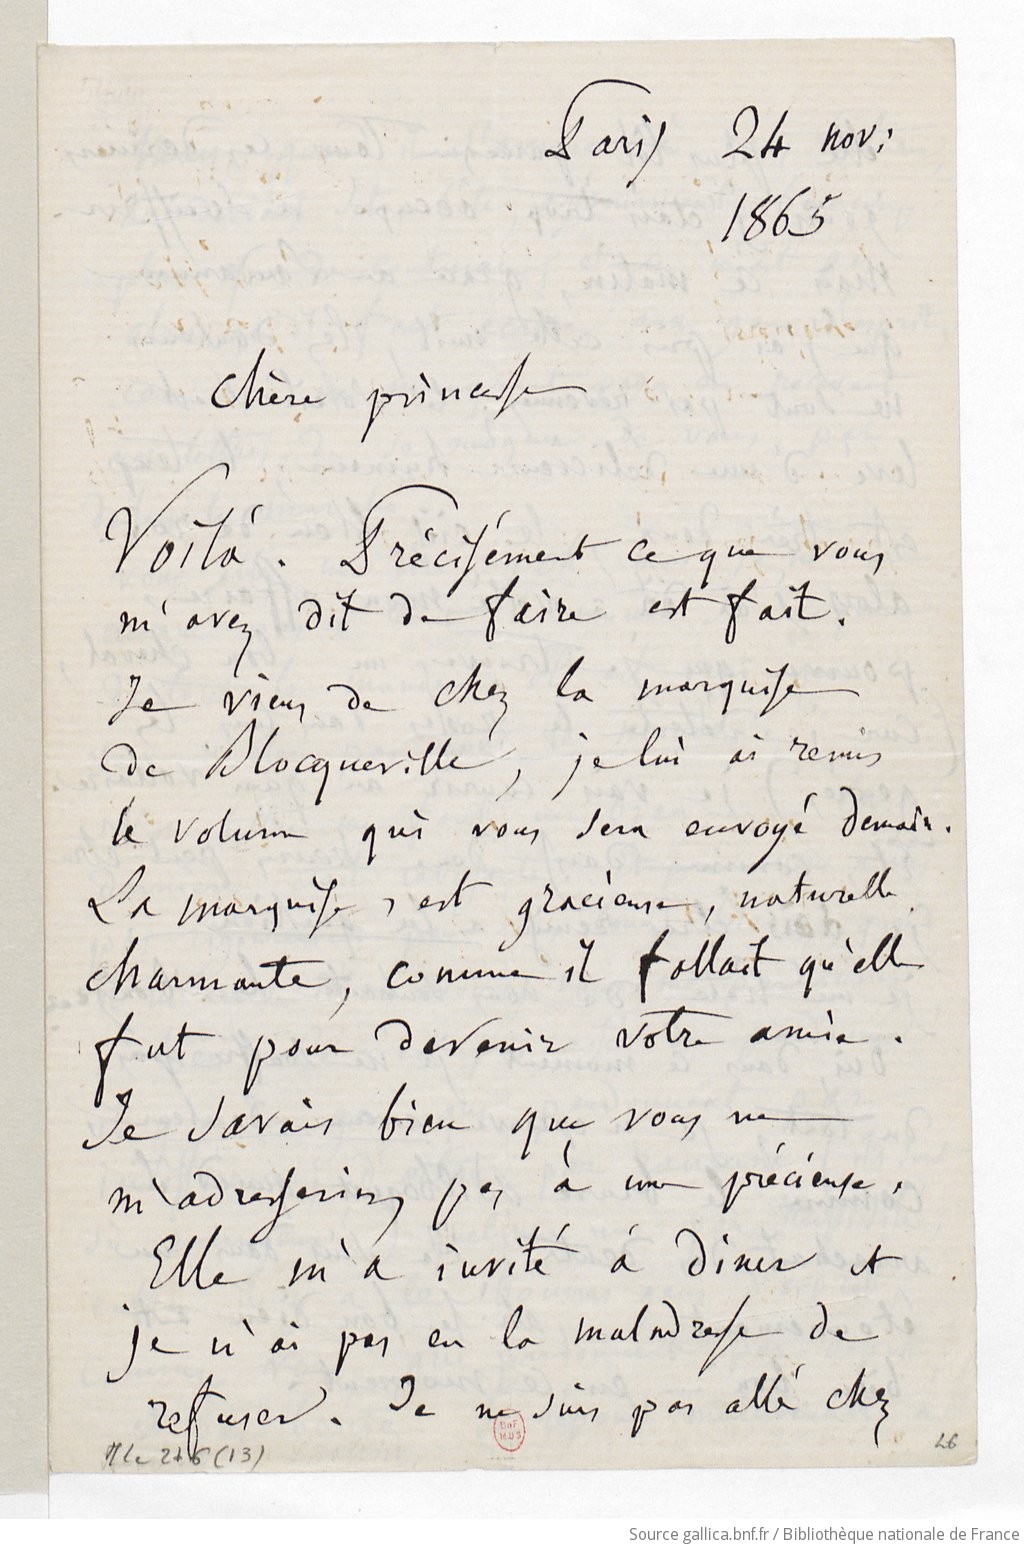 Paris 24 nov:
1865
Chère princesse
Voilà. Précisément ce que vous
m'avez dit de faire est fait.
Je viens de chez la marquise
de Blocqueville, je lui ai remis
le volume qui vous sera envoyé demain.
La marquise est gracieuse, naturelle,
charmante, comme il fallait qu'elle
fut pour devenir votre amie.
Je savais bien que vous ne
m'adresseriez pas à une précieuse.
Elle m'a invité à diner et
je n'ai pas eu la maladresse de
refuser. Je ne suis pas allé chez
BnF
MUS
26
Source gallica.bnf.fr / Bibliothèque nationale de France